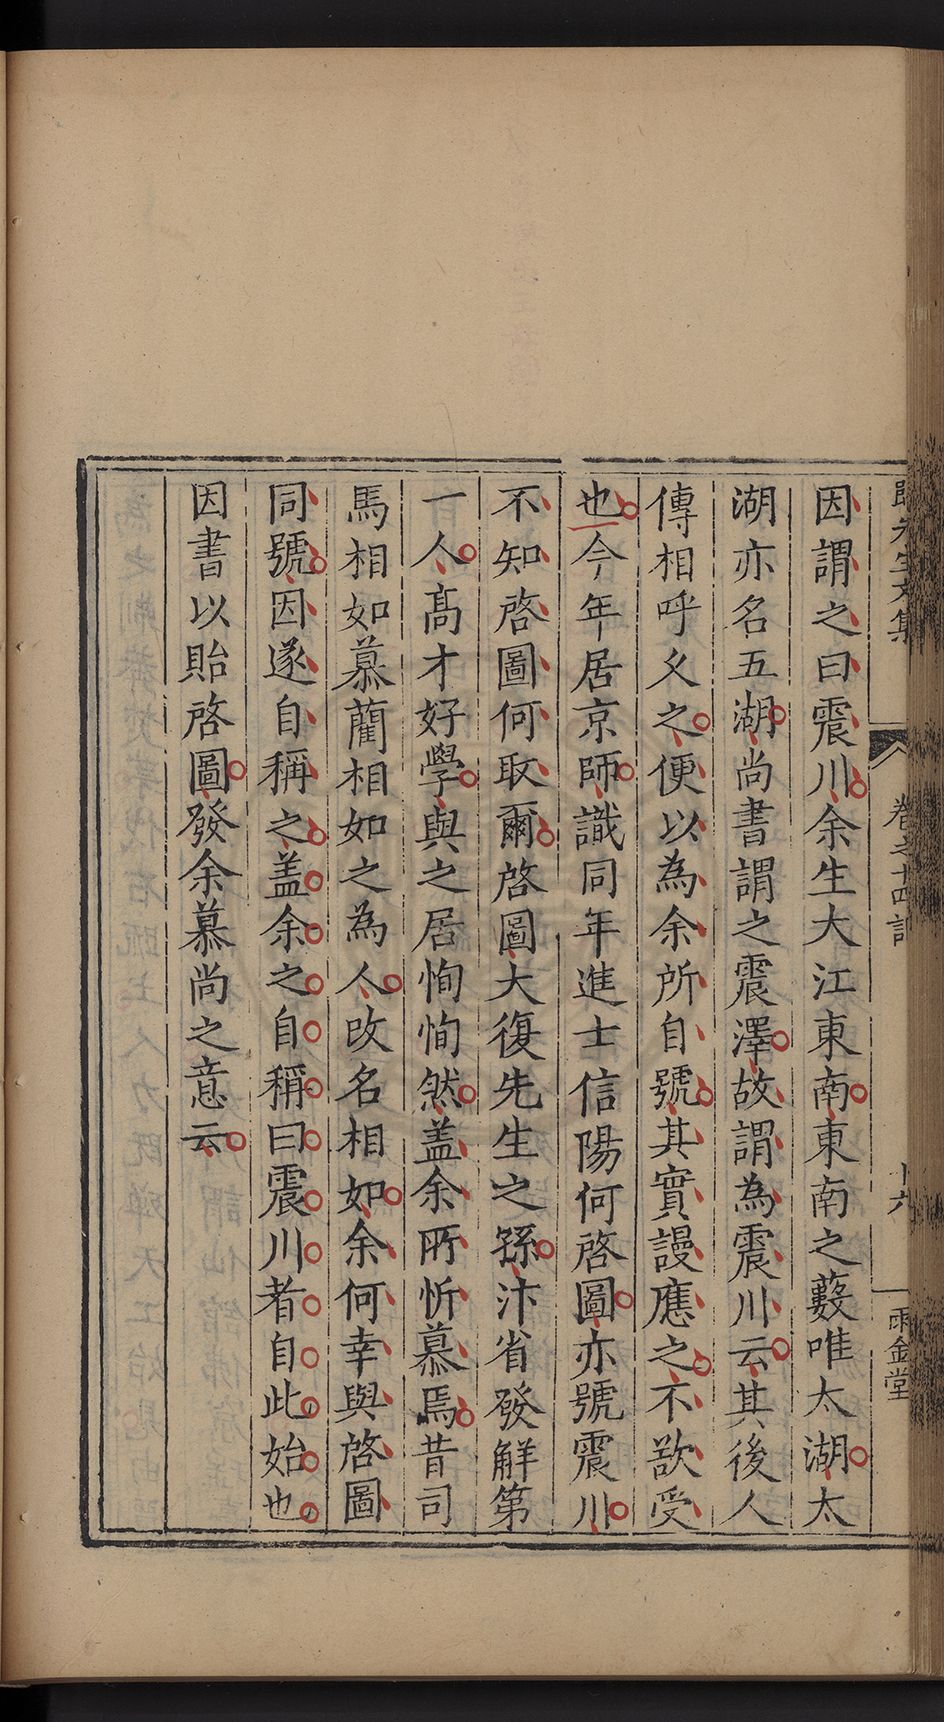 歸先生文集
卷之十四記
十六
雨金堂
因謂之曰震川余生大江東南東南之藪唯太湖太
湖亦名五湖尚書謂之震澤故謂為震川云其後人
傳相呼久之便以為余所自號其實謾應之不欲受
也今年居京師識同年進士信陽何啓圖亦號震川
不知啓圖何取爾啓圖大復先生之孫汴省發解第
一人高才好學與之居恂恂然盖余所忻慕焉昔司
馬相如慕藺相如之為人改名相如余何幸與啓圖
同號因遂自稱之盖余之自稱曰震川者自此始也
因書以貽啓圖發余慕尚之意云